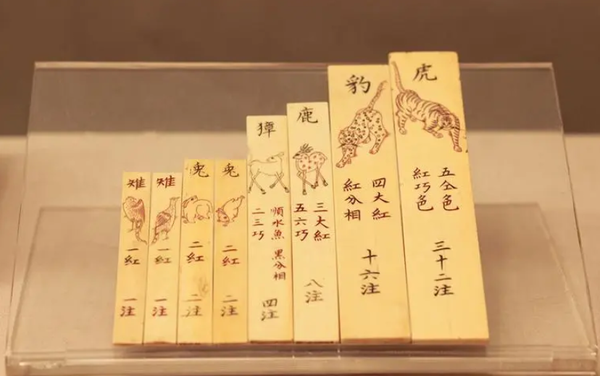 虎
五仝色
紅巧色
三十二注
豹
四大紅
紅分相
十六注
鹿
三大紅
五六巧
八注
獐
順水魚 黑分相
二三巧
四注
兎
二紅
二注
兎
二紅
二注
雉
一紅
一注
雉
一紅
一注